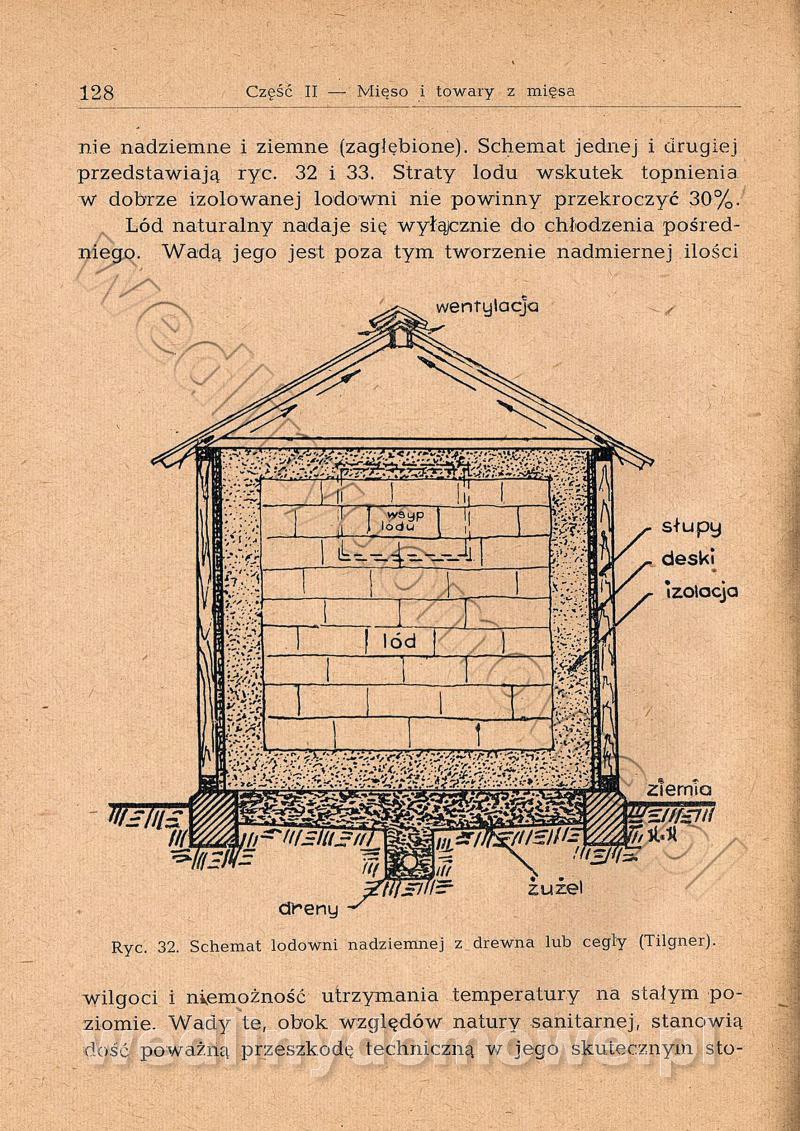 128 Część II — Mięso i towary z mięsa
nie nadziemne i ziemne (zagłębione). Schemat jednej i drugiej
przedstawiają ryc. 32 i 33. Straty lodu wskutek topnienia
w dobrze izolowanej lodowni nie powinny przekroczyć 30%.
Lód naturalny nadaje się wyłącznie do chłodzenia pośred-
niego. Wadą jego jest poza tym tworzenie nadmiernej ilości
wentylacja
wsyp
lodu
słupy
deski
izolacja
lód
ziemia
żużel
dreny
Ryc. 32. Schemat lodowni nadziemnej z drewna lub cegły (Tilgner).
wilgoci i niemożność utrzymania temperatury na stałym po-
ziomie. Wady te, obok względów natury sanitarnej, stanowią
dość poważną przeszkodę techniczną w jego skutecznym sto-
wedlinydomowe.pl
wedlinydomowe.pl